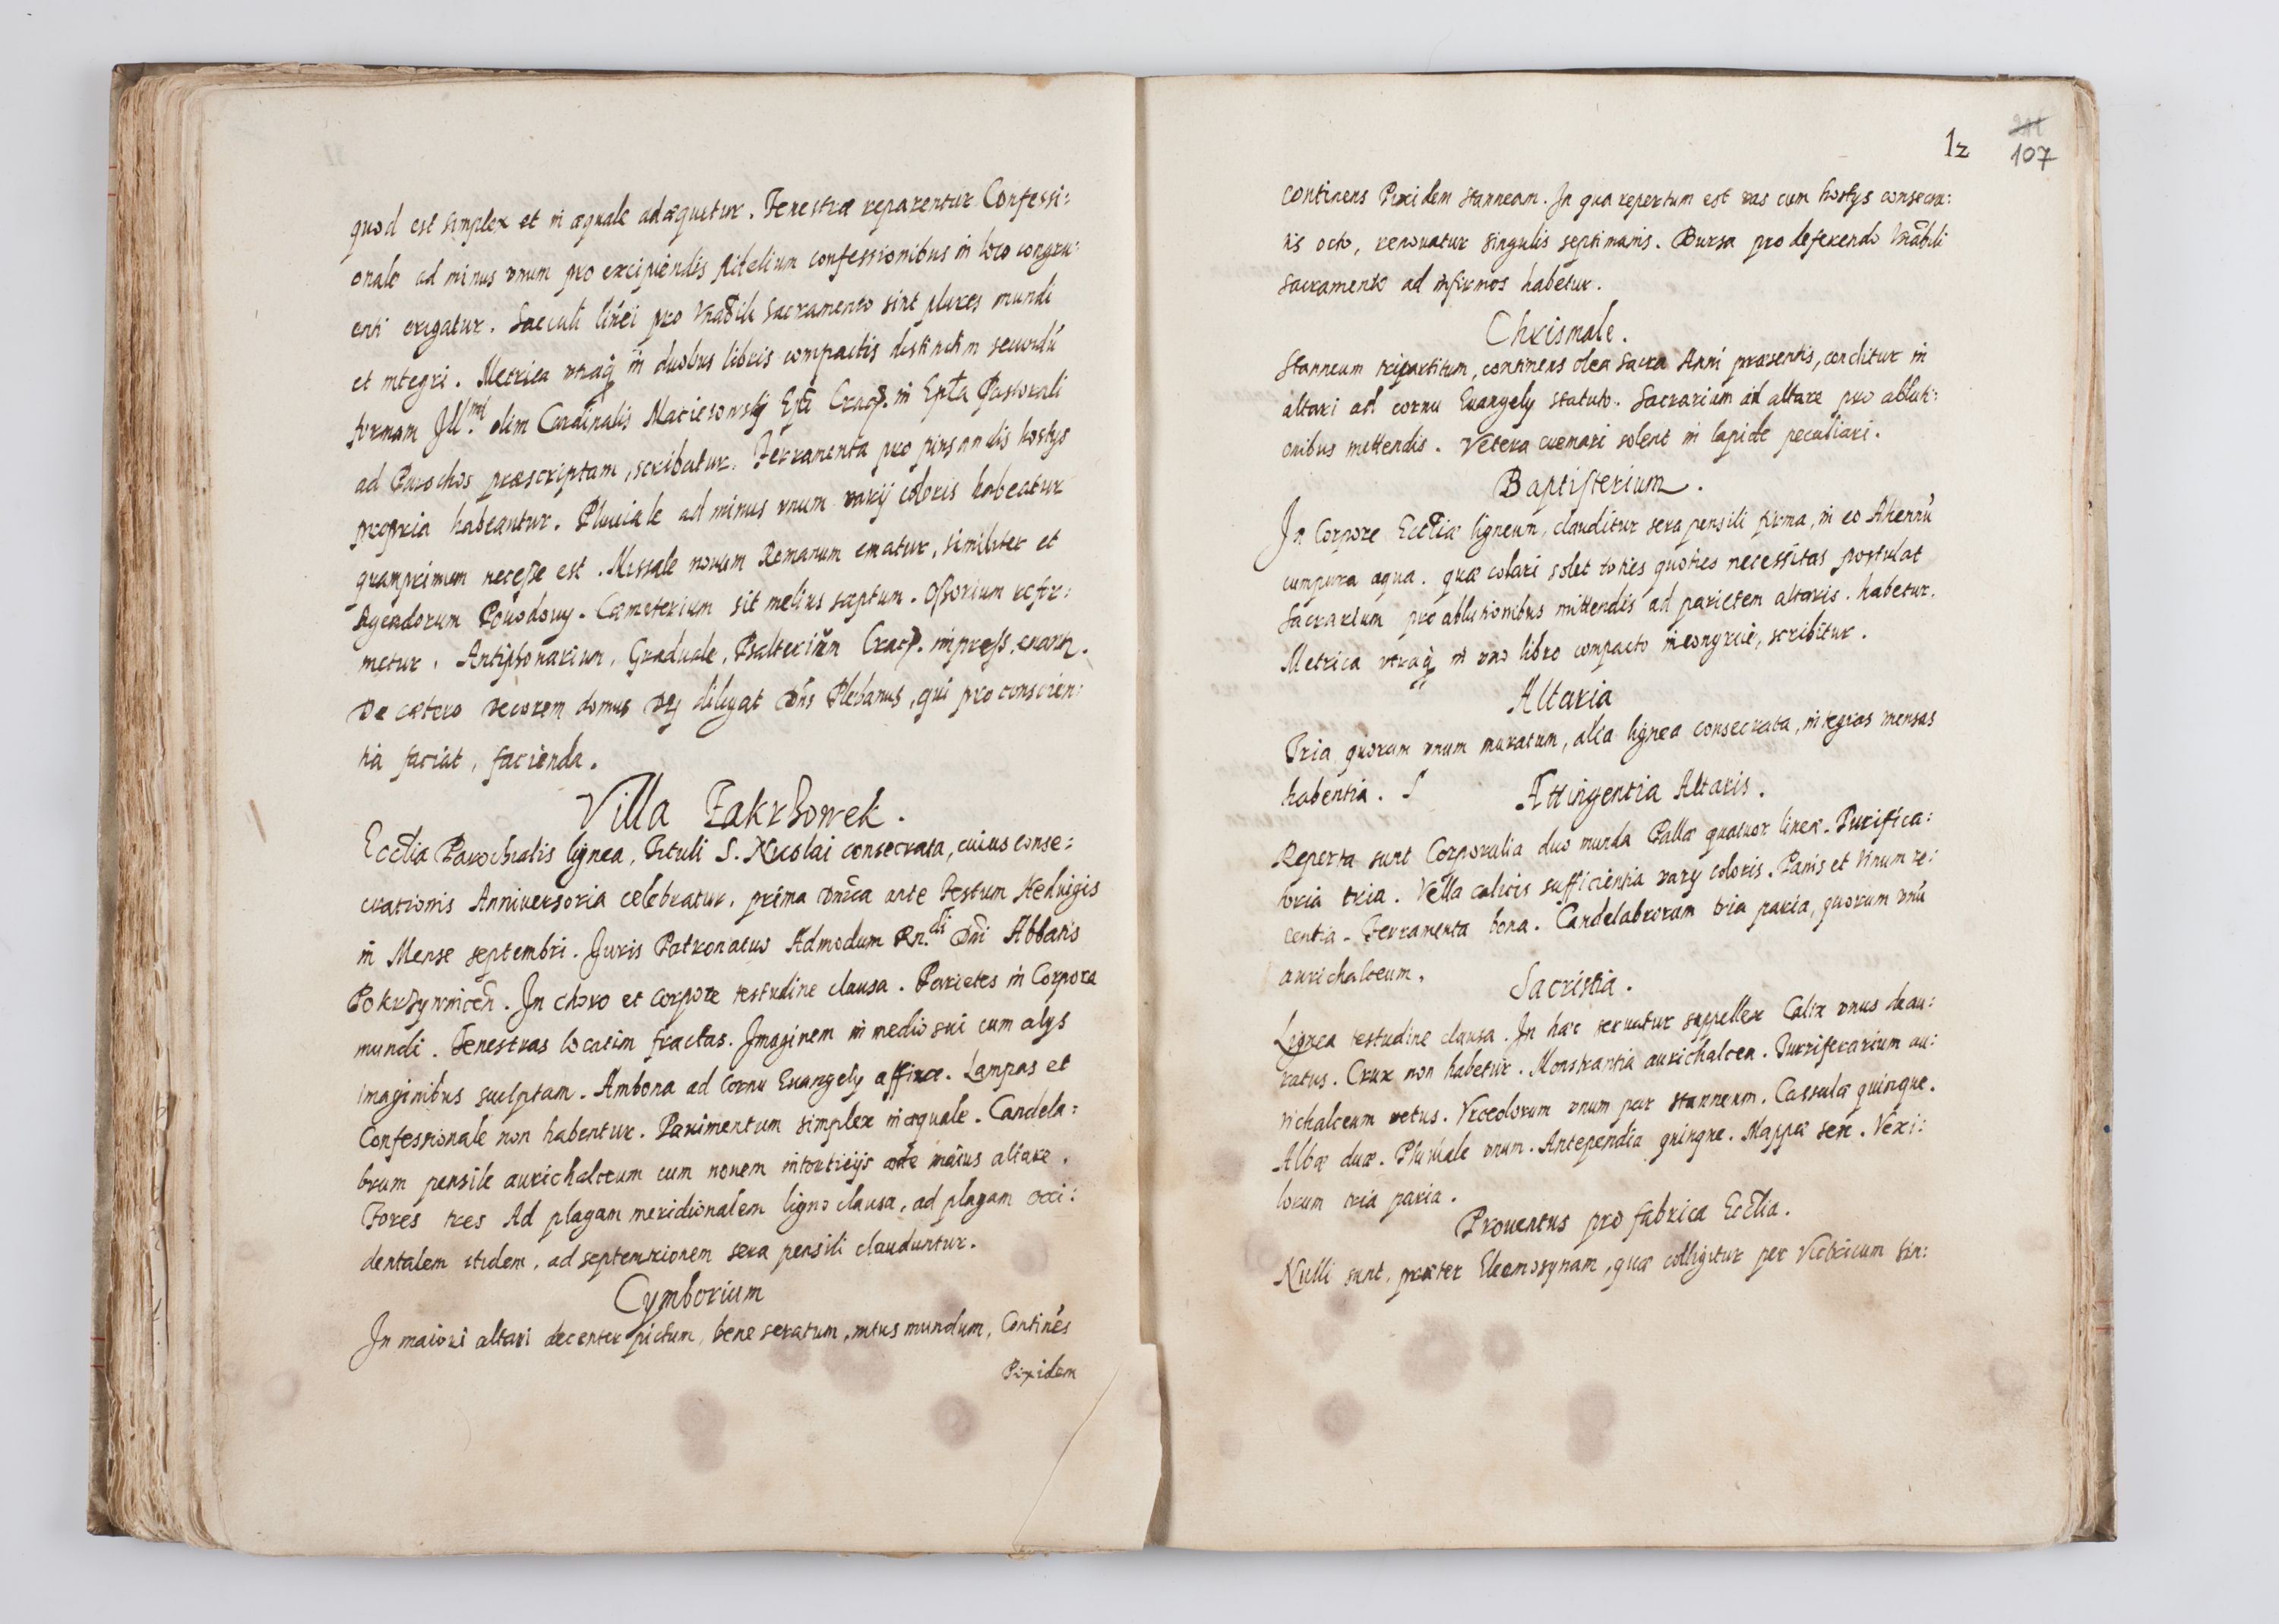 quod est simplex et in æquale adæquetur. Fenestræ reparentur Confessi:
onale ad minus vnum pro excipiendis fidelium confessionibus in loco congru:
enti erigatur. Sacculi linei pro Vnãbili Sacramento sint plures mundi
et integri. Metrica vtraq́ in duobus libris compactis distinctim secundũ
formam Jll.mi olim Cardinalis Macieiowskÿ Epĩ Crac. in Epl̃a Pastorali
ad Parochos præscriptam, scribatur. Ferramenta pro pinsandis hostÿs
propria habeantur. Pluuiale ad minus vnum varÿ coloris habeatur
quamprimum necesse est. Missale nouum Romanum ematur, similiter et
Agendorum Powodowÿ. Cæmeterium sit melius sæptum. Ossorium refor:
metur. Antiphonarium, Graduale, Psalterium Crac. impress.
De cætero decorem domus Dei diligat Dñs Plebanus, qui pro conscien:
tia faciat, facienda.
Villa Zakrzowek.
Eccl̃ia Parochialis lignea, Tituli S. Nicolai consecrata, cuius conse:
crationis Anniuersaria celebratur, prima Dnĩca ante Festum Heduigis
in Mense septembri. Juris Patronatus Admodum Rn.di Dñi Abbatis
Pokrzywnicen̄. Jn choro et corpore testudine clausa. Parietes in Corpore
mundi. Fenestras locatim fractas. Jmaginem in medio sui cum alÿs
imaginibus sculptam. Ambona ad Cornu Euangelÿ affixa. Lampas et
Confessionale non habentur. Pauimentum simplex inæquale. Candela:
brum pensile aurichalceum cum nouem intorticijs ante maius altare.
Fores tres Ad plagam meridionalem ligno clausa, ad plagam occi:
dentalem itidem, ad septemtrionem sera pensili clauduntur.
Cymborium
Jn maiori altari decenter pictum, bene seratum, intus mundum, Continẽs
Pixidem
12
107
continens Pixidem stanneam. Jn qua repertum est vas cum hostÿs consecra:
tis octo, renouatur singulis septimanis. Bursa pro deferendo Vnãbili
sacramento ad infirmos habetur.
Chrismale.
Stanneum tripartitum, continens olea sacra Anni præsentis, conditur in
altari ad cornu Euangelÿ statuto. Sacrarium ad altare pro abluti:
onibus mittendis. Vetera cremari solent in lapide peculiari.
Baptisterium.
Jn Corpore Eccl̃iæ ligneum, clauditur sera pensili firma, in eo Ahennũ
cum pura aqua. quæ colari solet toties quoties necessitas postulat
Sacrarium pro ablutionibus mittendis ad parietem altaris. habetur.
Metrica vtraq́ in vno libro compacto incongruè, scribitur.
Altaria
Tria quorum vnum muratum, alia lignea consecrata, integras mensas
habentia.
Attingentia Altaris.
Reperta sunt Corporalia duo munda Pallæ quatuor lineæ. Purifica:
toria tria. Vella calicis sufficientia varÿ coloris. Panis et Vinum re:
centia. Ferramenta bona. Candelabrorum tria paria, quorum vnũ
aurichalceum.
Sacristia.
Lignea testudine clausa. Jn hac seruatur suppellex Calix vnus deau:
ratus. Crux non habetur. Monstrantia aurichalcea. Turriferarium au:
richalceum vetus. Vrceolorum vnum par stanneum. Cassulæ quinque.
Albæ duæ. Pluuiale vnum. Antependia quinque. Mappæ sex. Vexi:
lorum tria paria.
Prouentus pro fabrica Eccl̃ia.
Nulli sunt, præter Eleemosynam, quæ colligitur per Victricum sin: